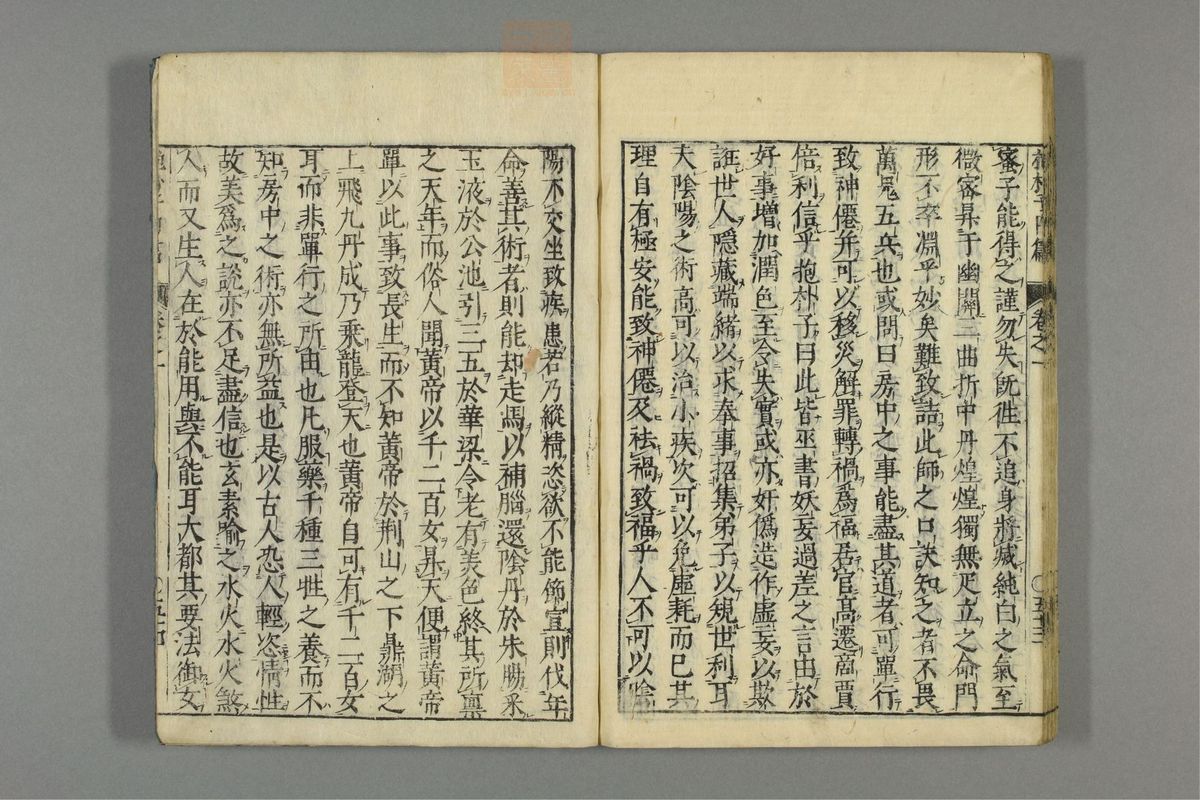 蜜子能得之謹勿失旣徃不追身將滅純白之氣至
微宻昇于幽關三曲折中丹煌煌獨無疋立之命門
形不卒淵乎妙矣難致詰此師之口訣知之者不畏
萬鬼五兵也或問曰房中之事能盡其道者可單行
致神僊并可以移災解罪轉禍爲福居官髙遷商賈
倍利信乎抱朴子曰此皆巫書妖妄過差之言由於
好事増加潤色至令失實或亦奸僞造作虛妄以欺
誑世人隱藏端緒以求奉事招集弟子以規世利耳
夫陰陽之術高可以治小疾次可以免虛耗而已其
理自有極安能致神僊及袪禍致福乎人不可以陰
陽不交坐致疾患若乃縱精恣欲不能節宣則伐年
命善其術者則能却走馬以補腦還陰丹於朱腸采
玉液於公池引三五於華梁令老有美色終其所稟
之天年而俗人聞黃帝以千二百女昇天便謂黃帝
單以此事致長生而不知黃帝於荆山之下鼎湖之
上飛九丹成乃乘龍登天也黃帝自可有千二百女
耳而非單行之所由也凡服藥千種三牲之養而不
知房中之術亦無所益也是以古人恐人輕恣情性
故美爲之說亦不足盡信也玄素喻之水火水火煞
人而又生人在於能用與不能耳大都其要法御女